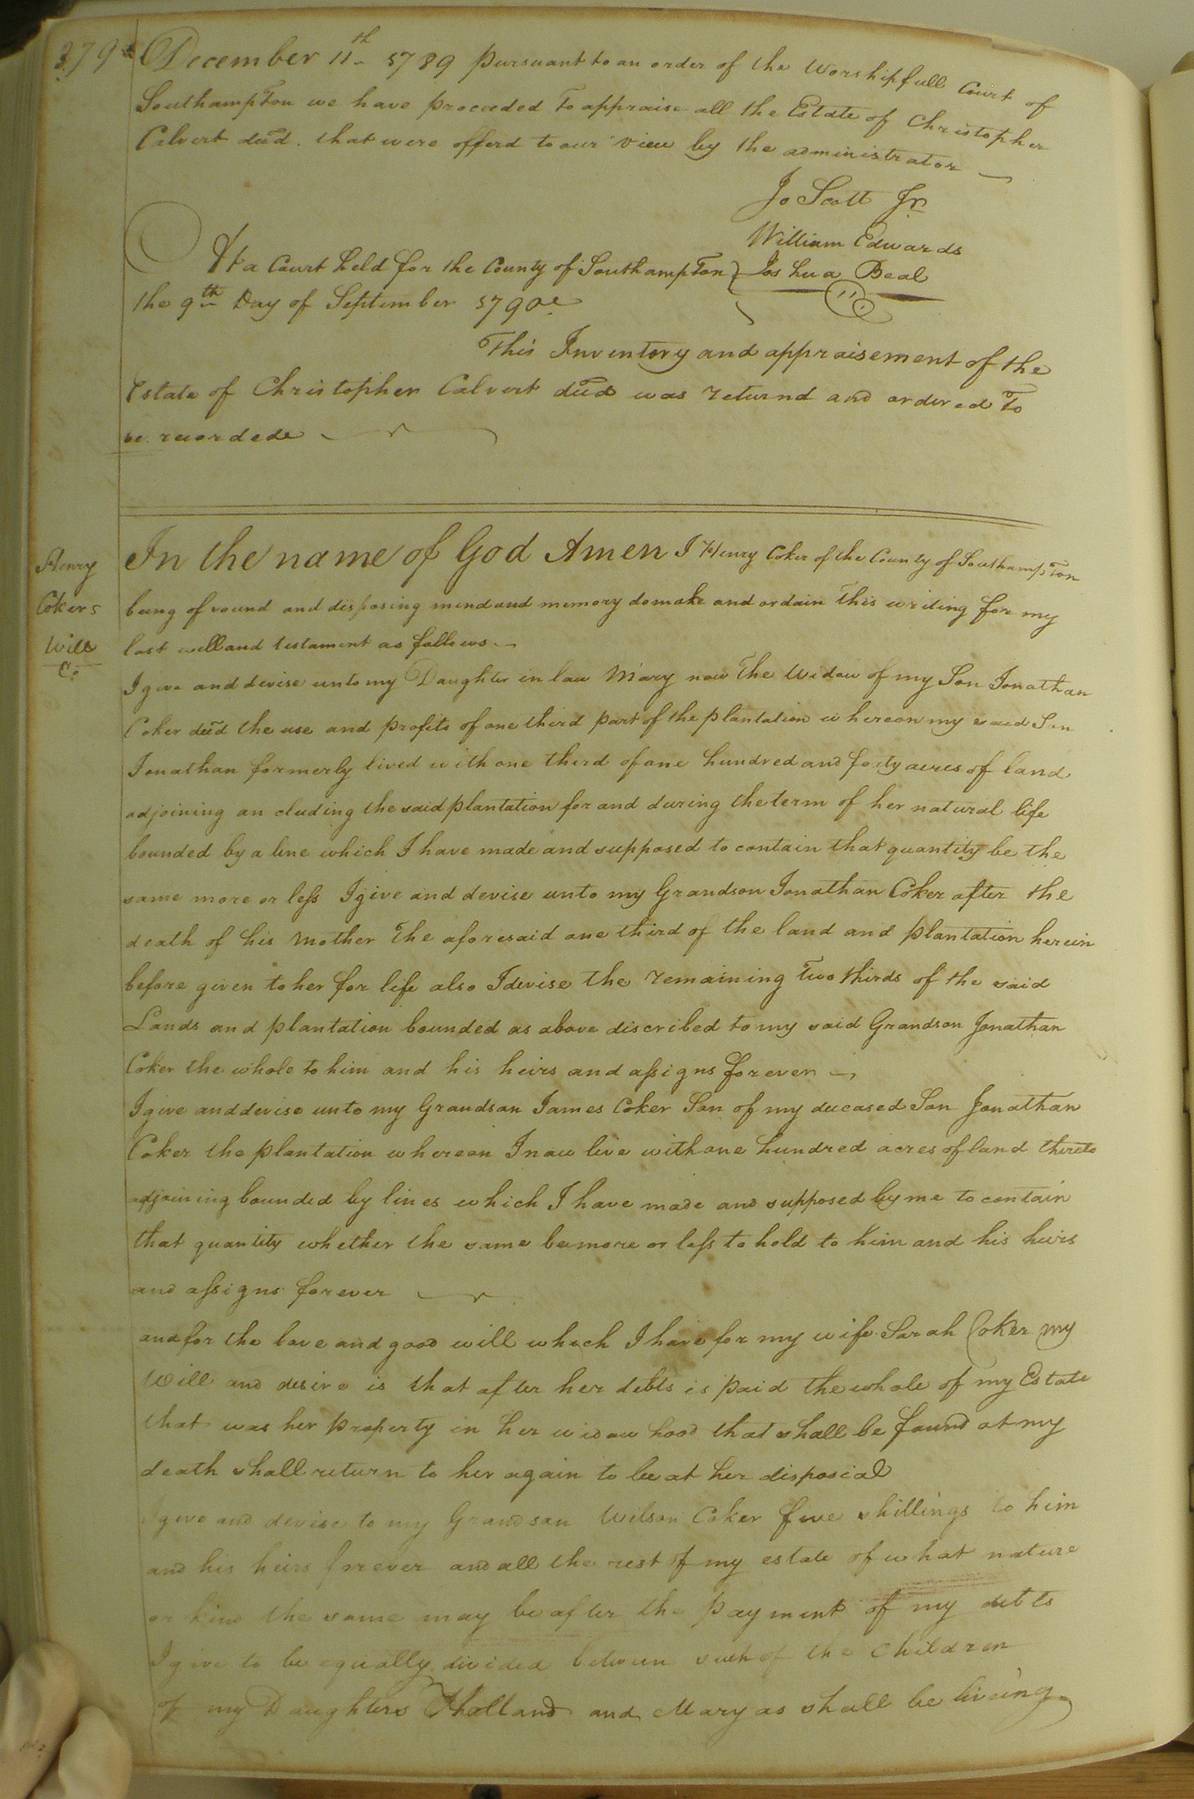 379
December 11th 1789 Pursuant to an order of the Worshipfull Court of
Southampton we have proceeded To appraise all the Estate of Christopher
Calvert decd. that were offerd to our view by the administrator
Jo Scott Jr
William Edwards
Joshua Beal
At a Court held for the County of Southampton
the 9th Day of September 1790
This Inventory and appraisement of the
Estate of Christopher Calvert decd was returnd and ordered To
be recordede
Henry
Cokers
Will
In the name of God Amen I Henry Coker of the County of Southampton
being of sound and disposing mind and memory do make and ordain This writing for my
last will and testament as follows
I give and devise unto my Daughter in law Mary now The Widow of my Son Jonathan
Coker decd the use and profits of one third part of the plantation whereon my said Son
Jonathan formerly lived with one third of one hundred and forty acres of land
adjoining an cluding the said plantation for and during the term of her natural life
bounded by a line which I have made and supposed to contain that quantity be the
same more or less I give and devise unto my Grandson Jonathan Coker after the
death of his Mother The aforesaid one third of the land and plantation herein
before given to her for life also I devise the remaining Two thirds of the said
Lands and plantation bounded as above discribed to my said Grandson Jonathan
Coker the whole to him and his heirs and assigns forever
I give and devise unto my Grandson James Coker Son of my deceased Son Jonathan
Coker the plantation whereon I now live with one hundred acres of land thereto
adjoining bounded by lines which I have made and supposed by me to contain
that quantity whether the same be more or less to hold to him and his heirs
and assigns forever
and for the love and good will which I have for my wife Sarah Coker my
Will and desire is that after her debts is paid the whole of my Estate
that was her property in her widow hood that shall be found at my
death shall return to her again to be at her disposial
I give and devise to my Grandson Wilson Coker five shillings to him
and his heirs forever and all the rest of my estate of what nature
or kind the same may be after the payment of my debts
I give to be equally divided between such of the Children
of my Daughters Holland and Mary as shall be liveing